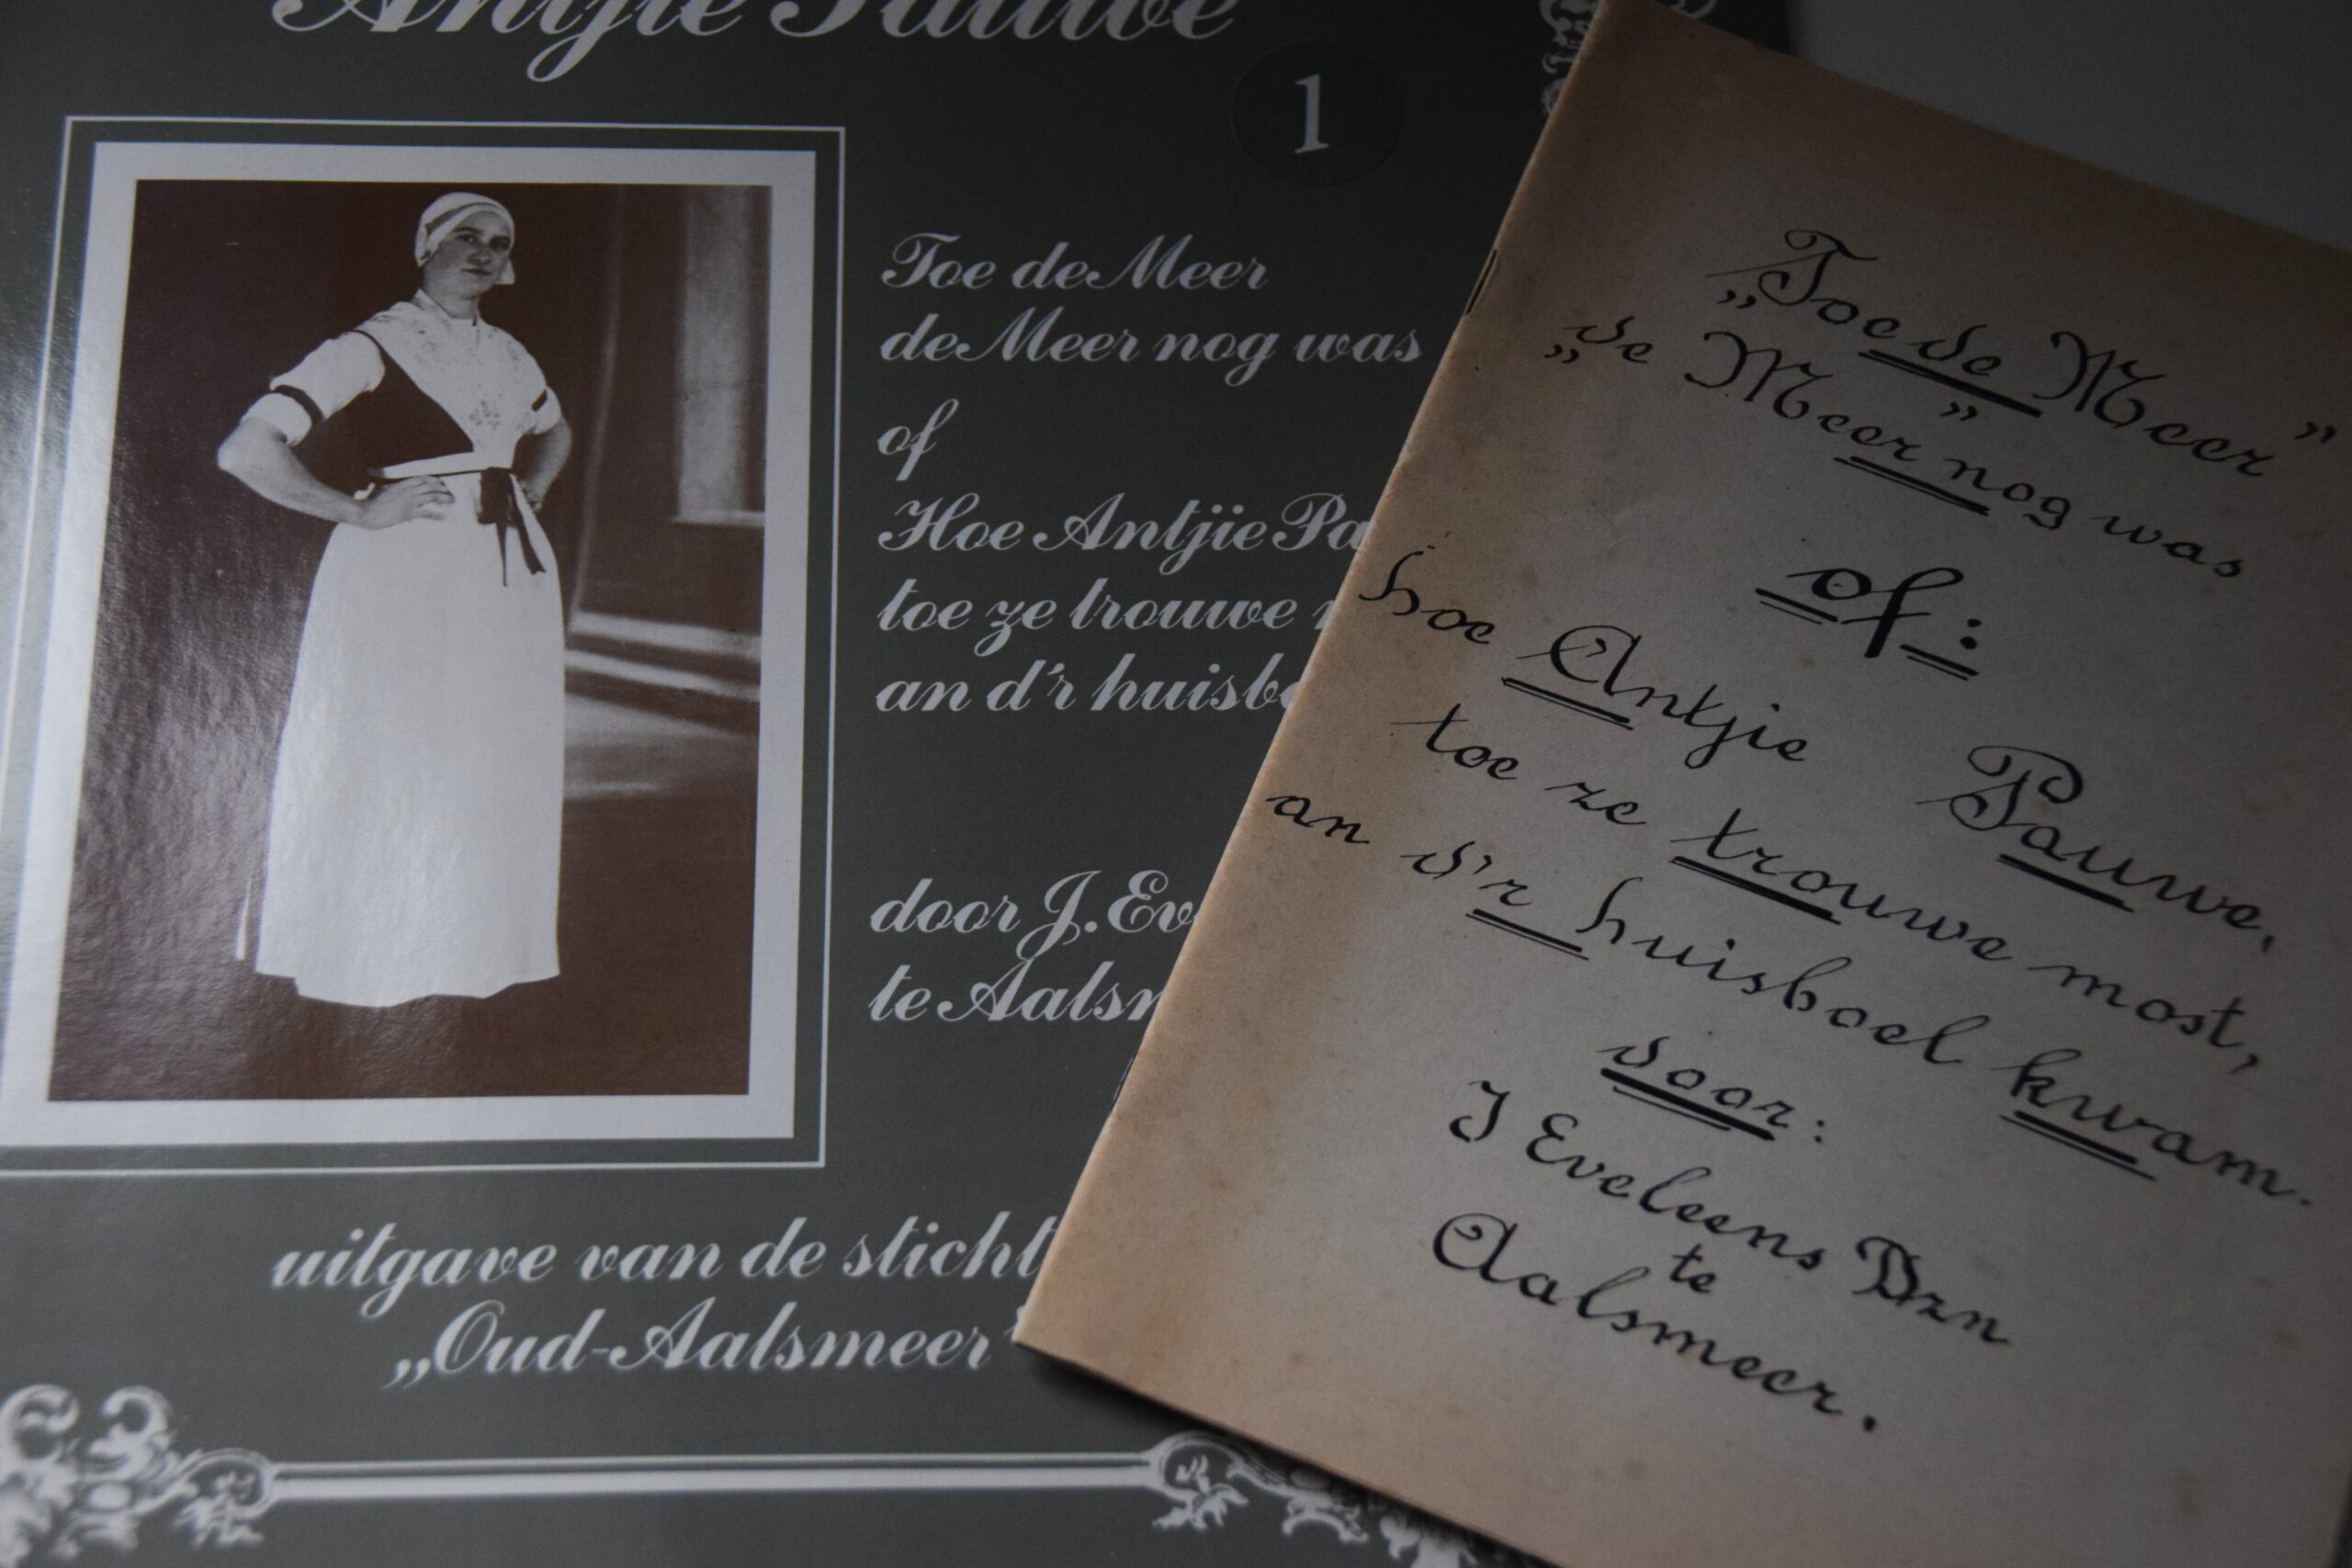 Antjie Pauwe
1
Toe de Meer
de Meer nog was
of
Hoe Antjie Pa
toe ze trouwe
an d'r huisbo
door J. Ev
te Aalsm
uitgave van de sticht
„Oud-Aalsmeer"
„Toe de Meer"
„de Meer" nog was
of:
hoe Antjie Pauwe,
toe ze trouwe most,
an d'r huisboel kwam.
door:
J Eveleens Dzn
te
Aalsmeer.